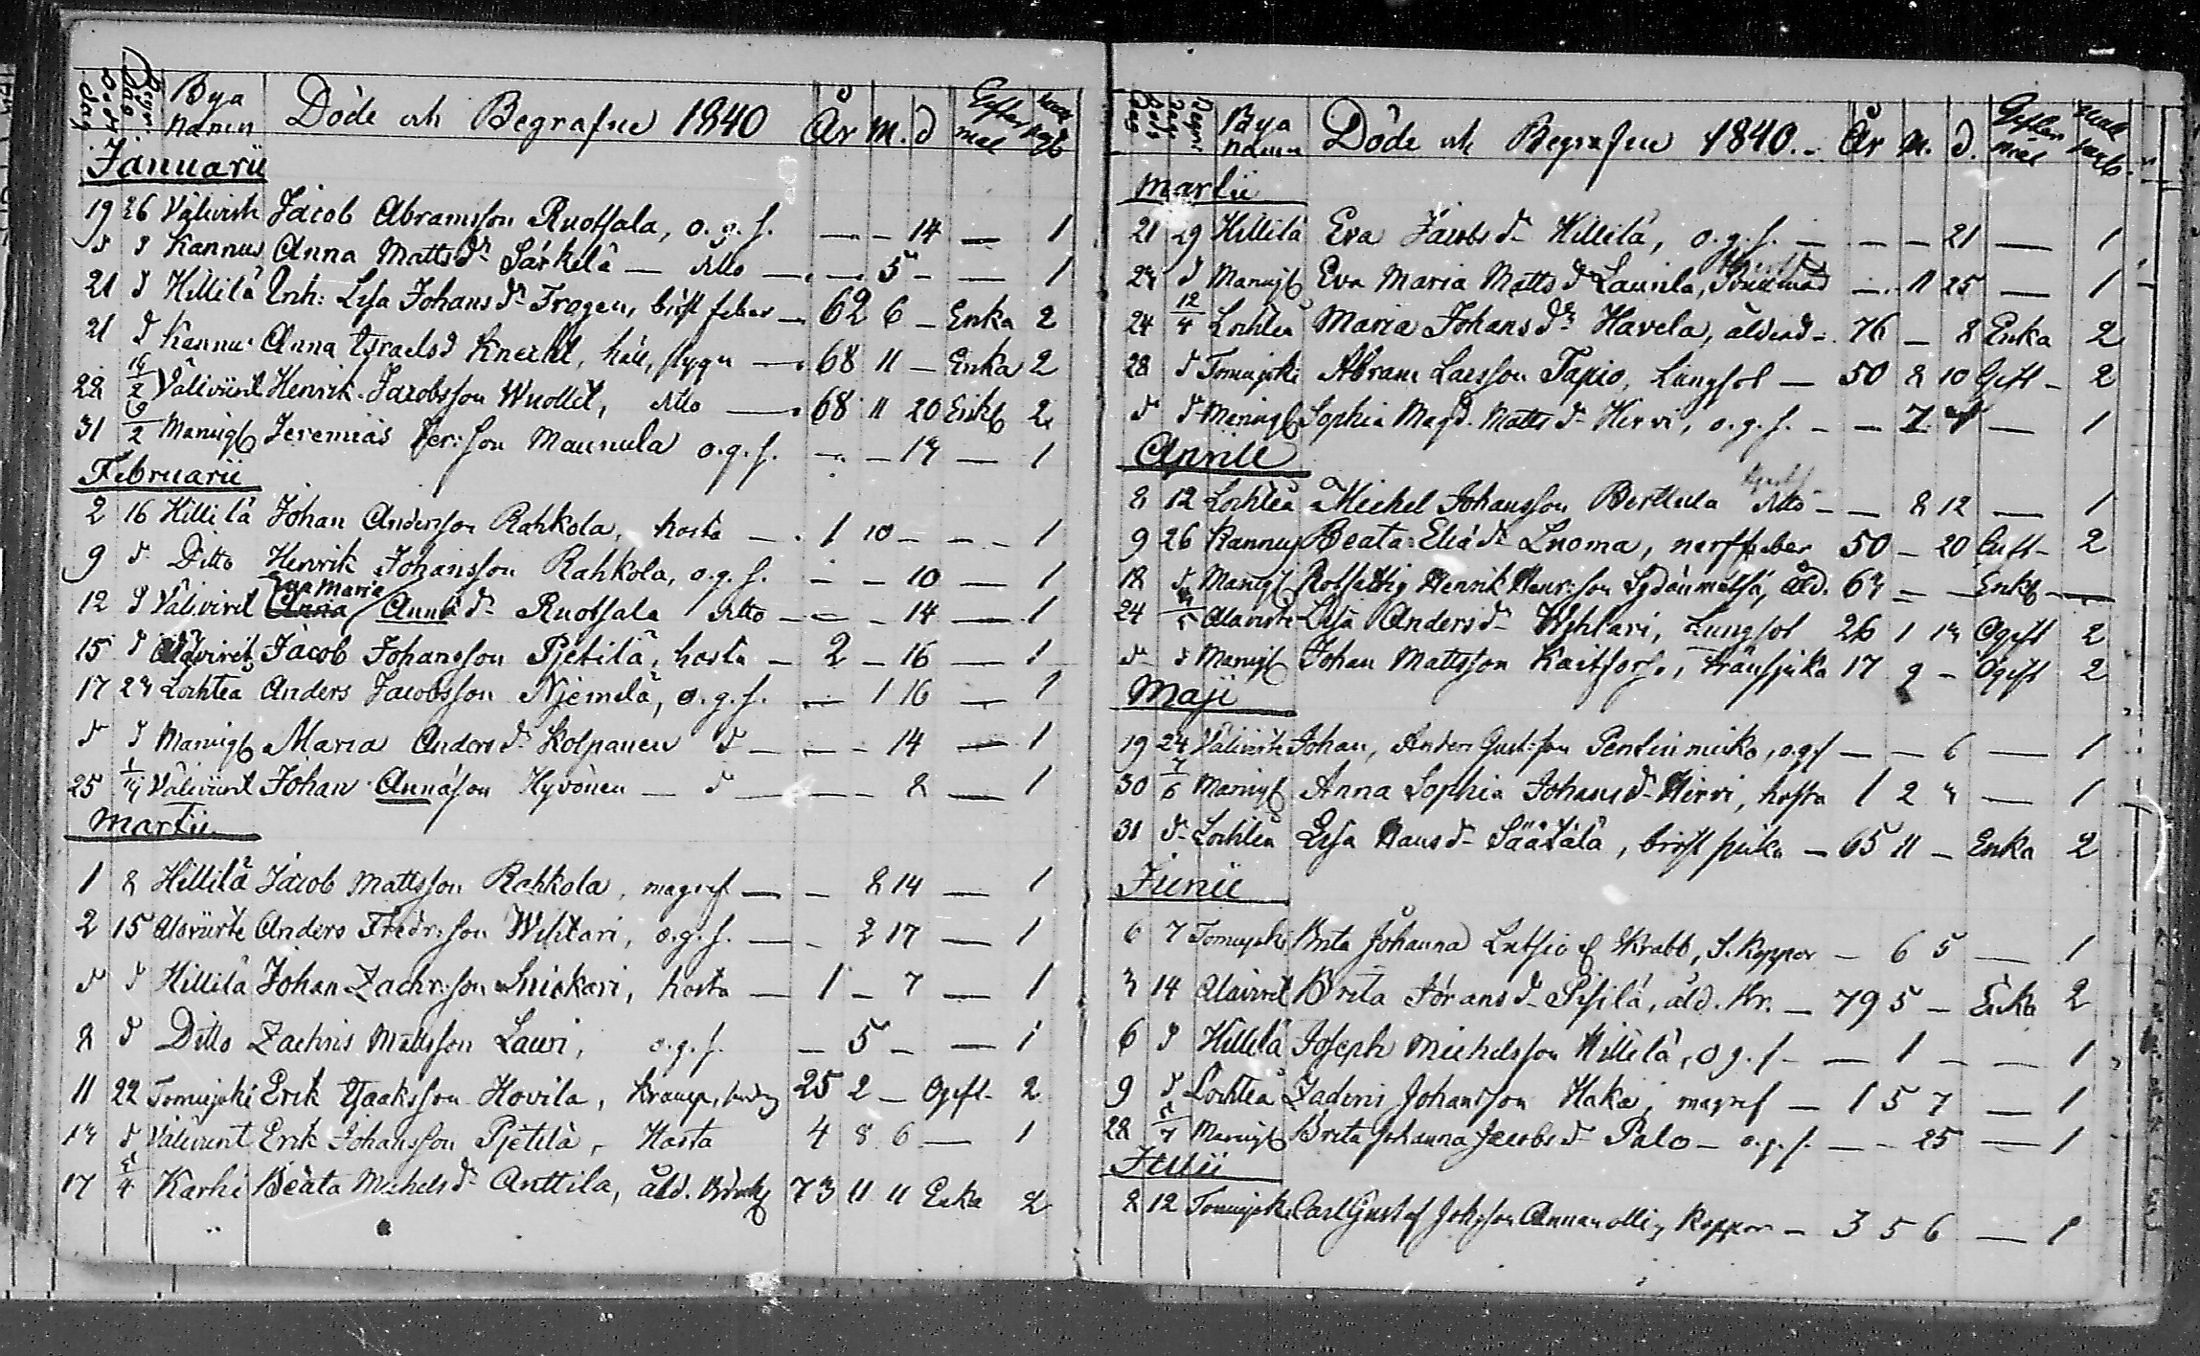 Döds Dag Begr: Dag Bya Namn Döde och Begrafne 1840 År M. d Gifter mål
Januarii
19 26 Väliviirt Jacob Abramsson Ruotsala, o.g.s. — — 14 — 1
d d Kannus Anna Mattsdr Särkelä — ditto — — 5 — — 1
21 d Hillilä Enk: Lisa Johansdr Frogen, bröst feber — 62 6 — Enka 2
21 d Kannus Anna Israelsd Knecht, håll, stygn — 68 11 — Enka 2
22 16/2 Väliviirt Henrik Jacobsson Wuollet, ditto — 68 11 20 Enkl 2
31 /2 Maringb Jeremias Jer:son Maunula o.g.s. — — 14 — 1
Februarii
2 16 Hillilä Johan Andersson Rahkola, hosta — 1 10 — — 1
9 d Ditto Henrik Johansson Rahkola, o.g.s. — — 10 — 1
Eva Maria
12 d Välivirt Anna Annädr Ruotsala ditto — — 14 — 1
15 d Alavirt Jacob Johansson Pjetilä, hosta — 2 — 16 — 1
17 23 Lochteå Anders Jacobsson Njemelä, o.g.s. — 1 16 — 1
d d Maringb Maria Andersdr Kolpanen d — — 14 — 1
25 1/ Väliviirt Johan Annäson Hyvönen — d — — 2 — 1
Martii
1 8 Hillilä Jacob Mattsson Rahkola, magref — — 8 14 — 1
2 15 Alaviirte Anders Fredr:son Wihtari, o.g.s. — — 2 17 — 1
d d Hillilä Johan Zachr:son Snickari, hosta — 1 — 7 — 1
8 d Ditto Zachris Mattsson Lauri, o.g.s. — 5 — — 1
11 22 Tomujoki Erik Isaksson Hovila, Kramp, 25 2 — Ogift 2
13 d Väliviirt Erik Johansson Pjetilä, Hosta 4 8 6 — 1
17 5/4 Karhi Beata Michelsdr Anttila, åld. 73 11 11 Enka 2
Döds Dag Begr: Dag Bya Namn Döde och Begrafne 1840. År M. d. Gifter mål
Martii
21 29 Hillilä Eva Jacobsdr Hillilä, o.g.s. — — — 21 — 1
23 d Maringb Eva Maria Mattsd Launila, — 11 25 — 1
24 12/4 Lochteå Maria Johansdr Havela, ålderd — 76 — 8 Enka 2
28 d Tomujoki Abram Larsson Tapio, Lungsot — 50 8 10 Gift — 2
d d Maringb Sophia Magd. Mattsdr Hirvi, o.g.s. — — 7 — 1
Aprill
8 12 Lochteå Michel Johansson Berttula ditto — — 8 12 — 1
9 26 Kannus Beata Eliädr Luoma, nerffeber 50 — 20 Gift — 2
18 d Maringb Rotfattig Henrik Henr:son Sydänmetsä, åld. 63 — — Enkl —
24 /5 Alavirte Lisa Andersdr Wihtari, Lungsot 26 1 13 Ogift 2
d d Maringb Johan Mattsson Kaitfors, 17 9 — Ogift 2
Maji
19 24 Välivirte Johan, Anders Gust:son Pentinmikko, o.g.s — — 6 — 1
30 7/6 Maringb Anna Sophia Johansdr Hirvi, hosta 1 2 3 — 1
31 d Lochteå Lisa Hansdr Säätälä, bröst sjuka — 65 11 — Enka 2
Junii
6 7 Tomujoki Brita Johanna Krabb, S. Koppor — 6 5 — 1
3 14 Alavirt Brita Göransdr Pisilä, åld. Kr. — 79 5 — Enka 2
6 d Hillilä Joseph Michelsson Hillilä, o.g.s — — 1 — — 1
9 d Lochteå Johansson Haka, magref — 1 5 7 — 1
28 5/7 Maringb Brita Johanna Jacobsdr Palo — o.g.s. — — 25 — 1
Julii
8 12 Tomujoki Carl Gustaf Joh:son Annanolli, Koppor — 3 5 6 — 1